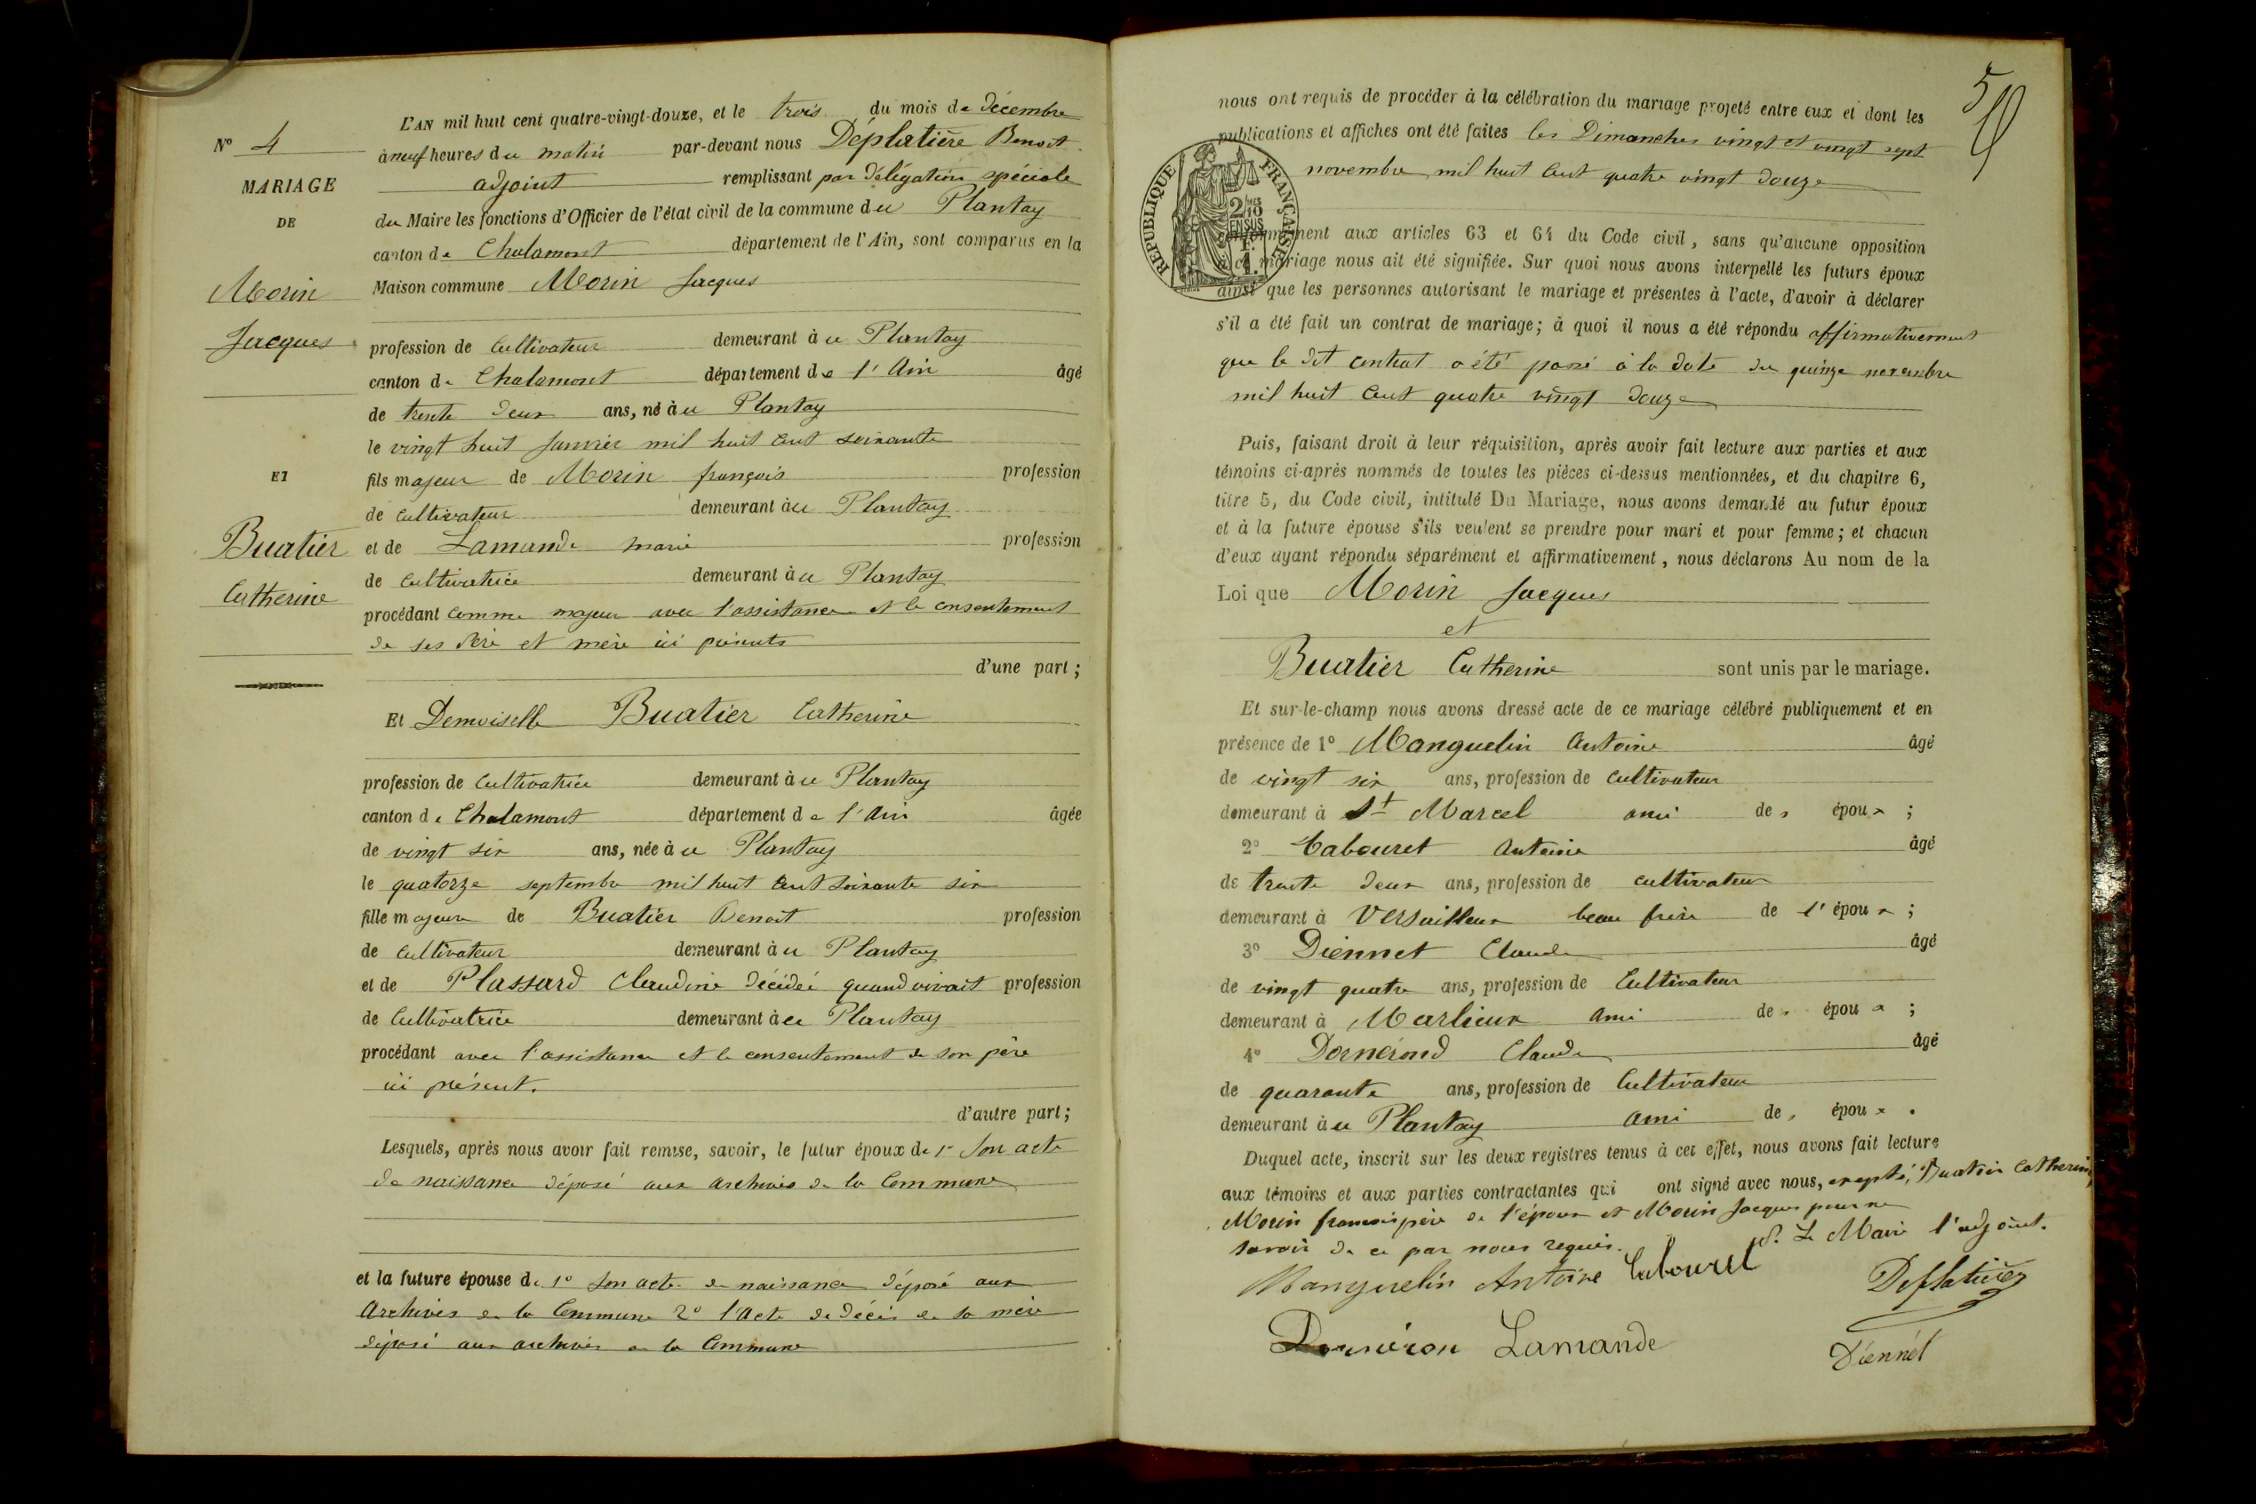 N° 4
MARIAGE
DE
Morin
Jacques
ET
Buatier
Catherine
L'AN mil huit cent quatre-vingt-douze, et le trois du mois de décembre
à neuf heures du matin par-devant nous Déplatière Benoit
adjoint remplissant par délégation spéciale
du Maire les fonctions d'Officier de l'état civil de la commune du Plantay
canton de Chalamont département de l'Ain, sont comparus en la
Maison commune Morin Jacques
profession de Cultivateur demeurant à u Plantay
canton de Chalamont département de l'Ain âgé
de trente deux ans, né à u Plantay
le vingt huit Janvier mil huit cent soixante
fils majeur de Morin françois profession
de cultivateur demeurant à u Plantay
et de Lamande marie profession
de cultivatrice demeurant à u Plantay
procédant comme majeur avec l'assistance et le consentement
de ses père et mère ici présents
d'une part;
Et Demoiselle Buatier Catherine
profession de cultivatrice demeurant à u Plantay
canton de Chalamont département de l'Ain âgée
de vingt six ans, née à u Plantay
le quatorze septembre mil huit cent soixante six
fille majeure de Buatier Benoit profession
de cultivateur demeurant à u Plantay
et de Plassard Claudine décédée quand vivait profession
de Cultivatrice demeurant à u Plantay
procédant avec l'assistance et le consentement de son père
ici présent.
d'autre part;
Lesquels, après nous avoir fait remise, savoir, le futur époux de 1° Son acte
de naissance déposé aux archives de la Commune
et la future épouse de 1° Son acte de naissance déposé aux
Archives de la Commune 2° l'Acte de décès de sa mère
déposé aux archives de la Commune
5
nous ont requis de procéder à la célébration du mariage projeté entre eux et dont les
publications et affiches ont été faites les Dimanches vingt et vingt sept
novembre mil huit cent quatre vingt douze
RÉPUBLIQUE FRANÇAISE
conformément aux articles 63 et 64 du Code civil, sans qu'aucune opposition
à ce mariage nous ait été signifiée. Sur quoi nous avons interpellé les futurs époux
ainsi que les personnes autorisant le mariage et présentes à l'acte, d'avoir à déclarer
s'il a été fait un contrat de mariage; à quoi il nous a été répondu affirmativement
que le dit contrat a été passé à la date du quinze novembre
mil huit cent quatre vingt douze
Puis, faisant droit à leur réquisition, après avoir fait lecture aux parties et aux
témoins ci-après nommés de toutes les pièces ci-dessus mentionnées, et du chapitre 6,
titre 5, du Code civil, intitulé Du Mariage, nous avons demandé au futur époux
et à la future épouse s'ils veulent se prendre pour mari et pour femme; et chacun
d'eux ayant répondu séparément et affirmativement, nous déclarons Au nom de la
Loi que Morin Jacques
et
Buatier Catherine sont unis par le mariage.
Et sur-le-champ nous avons dressé acte de ce mariage célébré publiquement et en
présence de 1° Manguelin Antoine âgé
de vingt six ans, profession de cultivateur
demeurant à St Marcel ami de épou ;
2° Cabouret Antoine âgé
de trente deux ans, profession de cultivateur
demeurant à Versailleux beau frère de l'époux ;
3° Diennet Claude âgé
de vingt quatre ans, profession de Cultivateur
demeurant à Marlieux ami de épou ;
4° Dornérond Claude âgé
de quarante ans, profession de Cultivateur
demeurant à u Plantay ami de épou .
Duquel acte, inscrit sur les deux registres tenus à cet effet, nous avons fait lecture
aux témoins et aux parties contractantes qui ont signé avec nous, excepté, Buatier Catherine,
Morin francois père de l'époux et Morin Jacques pour ne
savoir de ce par nous requis. P. Le Maire l'adjoint.
Manguelin Antoine Cabouret Deplatière
Dornéron Lamande Diennet